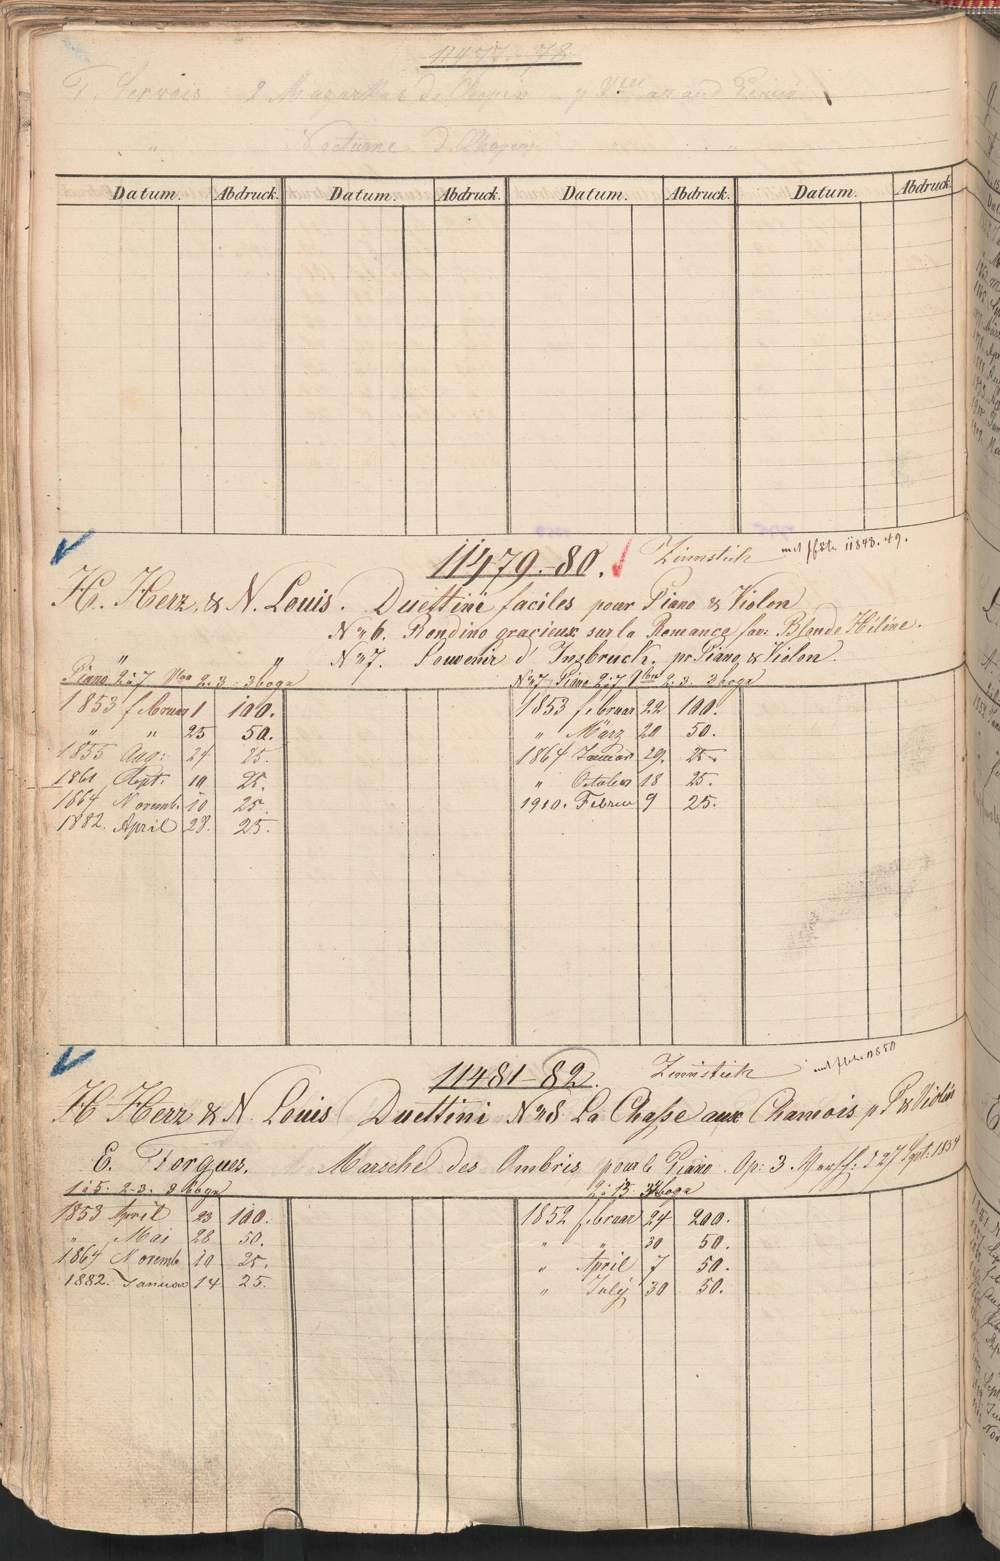 11477-78
F. Servais 2 Mazurkas de Chopin p Vcelle
" Nocturne d Chopin
Datum. Abdruck. Datum. Abdruck. Datum. Abdruck. Datum. Abdruck.
11479.-80. Zinnstich 11848.49.
H. Herz & N. Louis. Duettini faciles pour Piano & Violon
No 6. Rondino gracieux sur la Romance fav: Blonde Hélène.
" " No 7. Souvenir d' Insbruck. pr Piano & Violon.
Piano 2 à 7 2.3 - 3 boga No 7 2 à 7 2.3. 3 boga
1853 februar 1 100. 1853 februar 22 100.
" " 25 50. " März 20 50.
1855 Aug: 24 25. 1864 Januar 29. 25.
1861 Sept. 10 25. " October 18 25.
1864 Novemb. 10 25. 1910. Februar 9 25.
1882. April 28. 25.
11481-82. Zinnstich 11850
H Herz & N. Louis Duettini No 8 La Chasse aux Chamois p P & Violon
E. Forgues. Marsche des Ombris pour le Piano Op: 3 27 Sept: 1854
1 à 5. 2-3. 3 boga 2 à 13 boga
1853 April 23 100. 1852 februar 24 200.
" Mai 28 50. " " 30 50.
1864 Novemb 10 25. " April 7 50.
1882. Januar 14 25. " July 30 50.